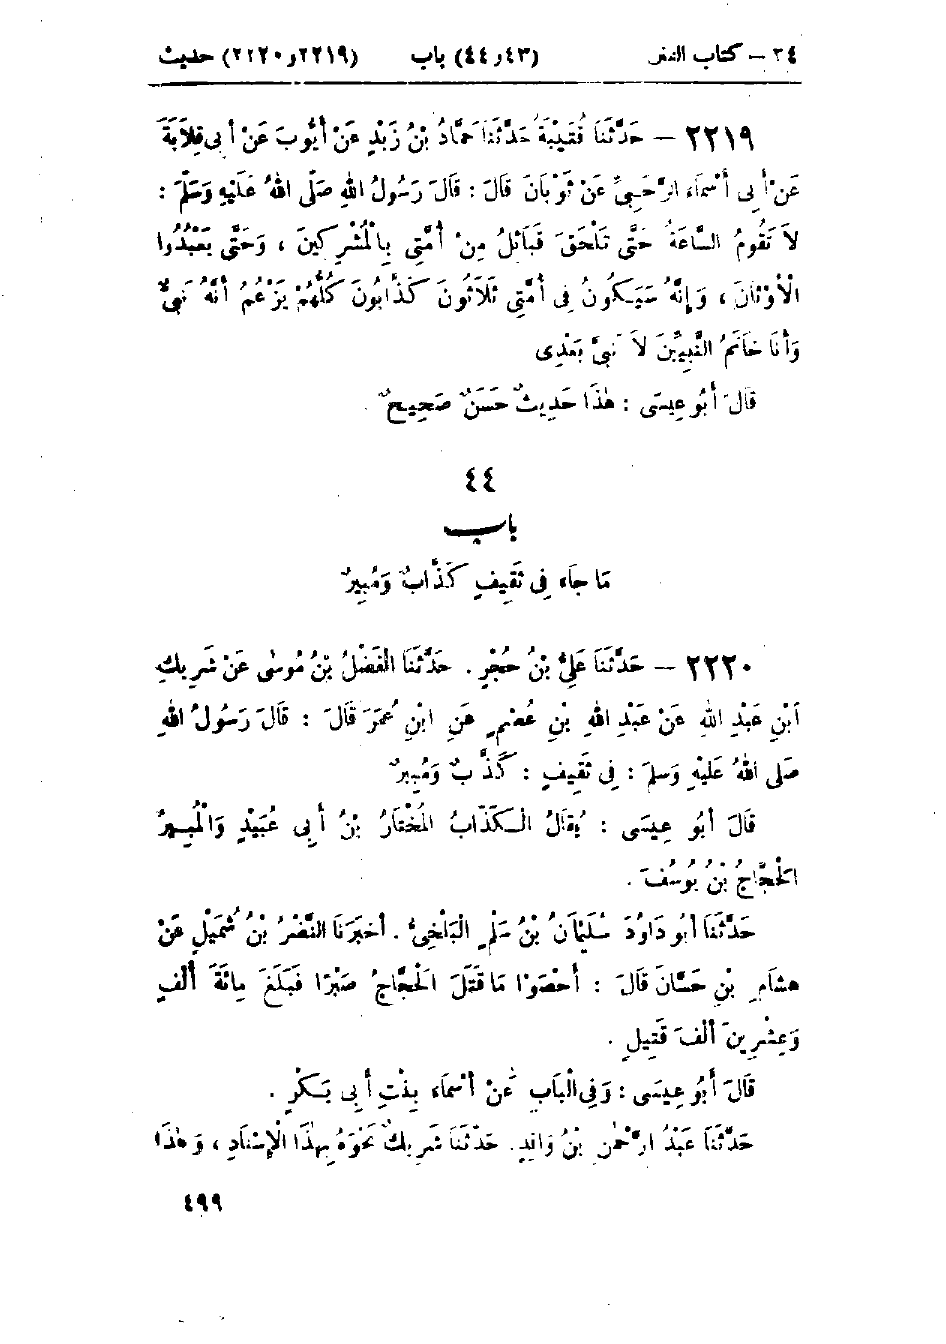 ٣٤ – كتاب الفتن (٤٣ و ٤٤) باب (٢٢١٩ و ٢٢٢٠) حديث
٢٢١٩ – حَدَّثَنَا قُتَيْبَةُ حَدَّثَنَا حَمَّادُ بْنُ زَيْدٍ عَنْ أَيُّوبَ عَنْ أَبِى قِلَابَةَ
عَنْ أَبِى أَسْمَاءَ الرَّحَبِىِّ عَنْ ثَوْبَانَ قَالَ : قَالَ رَسُولُ اللهِ صَلَّى اللهُ عَلَيْهِ وَسَلَّمَ :
لاَ تَقُومُ السَّاعَةُ حَتَّى تَلْحَقَ قَبَائِلُ مِنْ أُمَّتِى بِالْمُشْرِكِينَ ، وَحَتَّى يَعْبُدُوا
الْأَوْثَانَ ، وَإِنَّهُ سَيَكُونُ فِى أُمَّتِى ثَلَاثُونَ كَذَّابُونَ كُلُّهُمْ يَزْعُمُ أَنَّهُ نَبِىٌّ
وَأَنَا خَاتَمُ النَّبِيِّينَ لاَ نَبِىَّ بَعْدِى
قَالَ أَبُو عِيسَى : هٰذَا حَدِيثٌ حَسَنٌ صَحِيحٌ .
٤٤
باب
مَا جَاءَ فِى ثَقِيفٍ كَذَّابٌ وَمُبِيرٌ
٢٢٢٠ – حَدَّثَنَا عَلِىُّ بْنُ حُجْرٍ . حَدَّثَنَا الْفَضْلُ بْنُ مُوسَى عَنْ شَرِيكِ
ابْنِ عَبْدِ اللهِ عَنْ عَبْدِ اللهِ بْنِ عُصْمٍ عَنِ ابْنِ عُمَرَ قَالَ : قَالَ رَسُولُ اللهِ
صَلَى اللهُ عَلَيْهِ وَسَلَمَ : فِى ثَقِيفٍ : كَذَّابٌ وَمُبِيرٌ
قَالَ أَبُو عِيسَى : يُقَالُ الْكَذَّابُ الْمُخْتَارُ بْنُ أَبِى عُبَيْدٍ وَالْمُبِيرُ
الْحَجَّاجُ بْنُ يُوسُفَ .
حَدَّثَنَا أَبُو دَاوُدَ سُلَيْمَانُ بْنُ سَلْمٍ الْبَلْخِىُّ . أَخْبَرَنَا النَّضْرُ بْنُ شُمَيْلٍ عَنْ
هِشَامِ بْنِ حَسَّانَ قَالَ : أَحْصَوْا مَا قَتَلَ الْحَجَّاجُ صَبْرًا فَبَلَغَ مِائَةَ أَلْفٍ
وَعِشْرِينَ أَلْفَ قَتِيلٍ .
قَالَ أَبُو عِيسَى : وَفِى الْبَابِ عَنْ أَسْمَاءَ بِنْتِ أَبِى بَكْرٍ .
حَدَّثَنَا عَبْدُ الرَّحْمٰنِ بْنُ وَاقِدٍ. حَدَّثَنَا شَرِيكٌ نَحْوَهُ بِهٰذَا الْإِسْنَادِ ، وَهٰذَا
٤٩٩